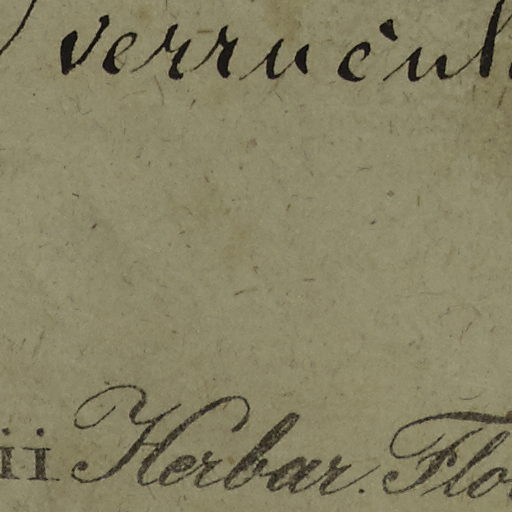 verrucul
ii Herbar. Flo